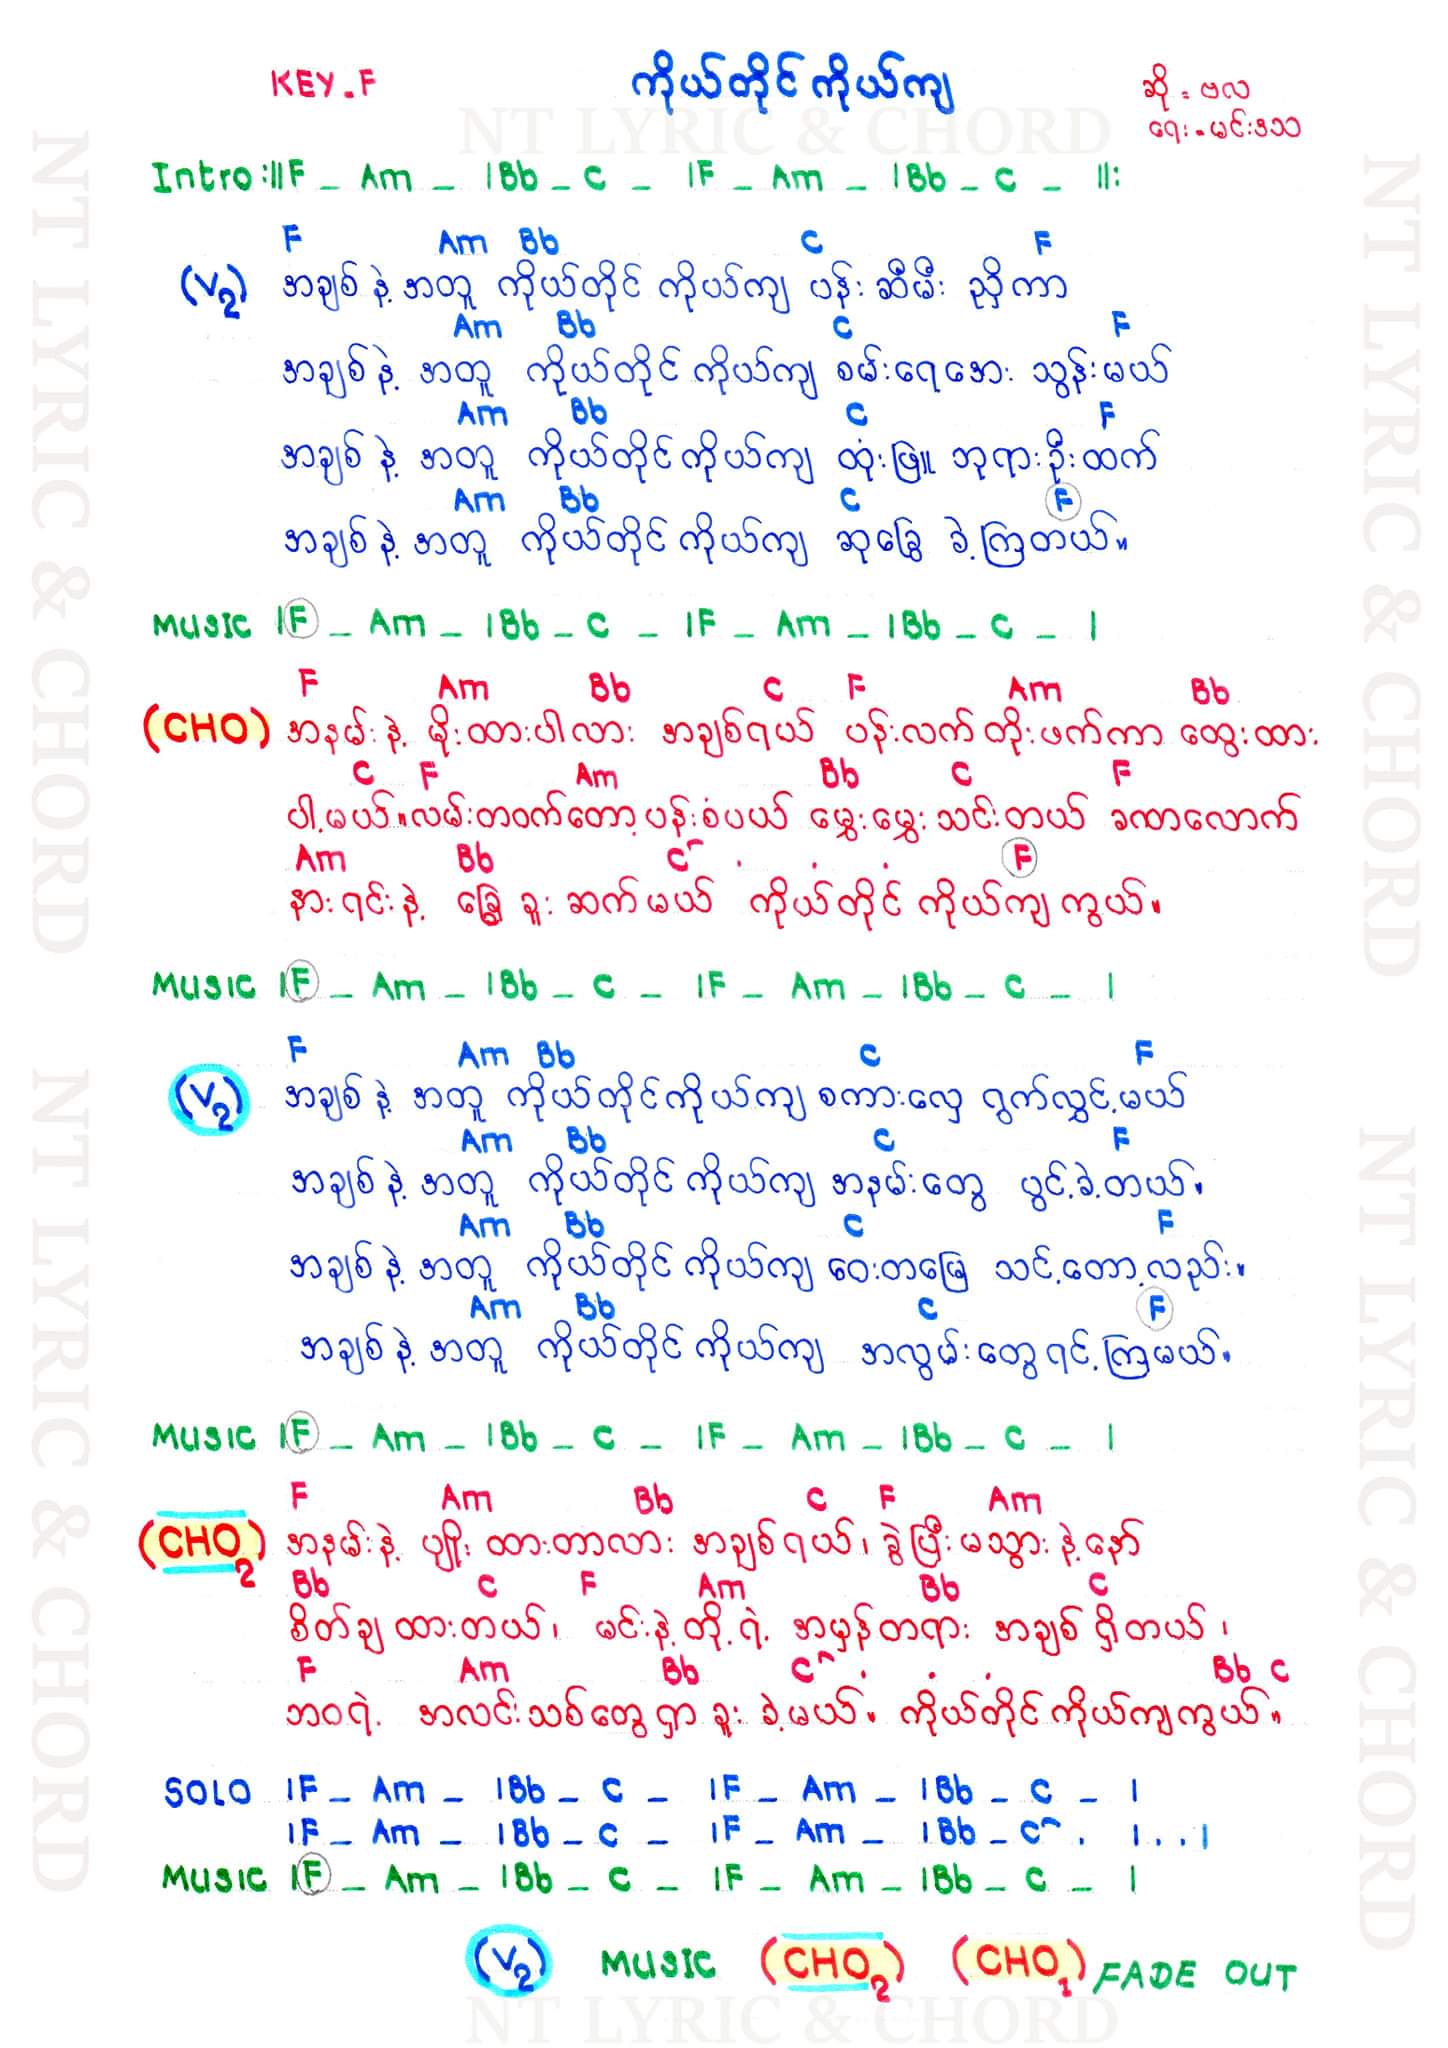 KEY-F ကိုယ်တိုင်ကိုယ်ကျ ဆို = ဗလ
ရေး = မင်းဒသာ
NT LYRIC & CHORD
Intro :||F _ Am _ |Bb _ C _ |F _ Am _ |Bb _ C _ ||:
F Am Bb C F
(V2) အချစ်နဲ့ အတူ ကိုယ်တိုင် ကိုယ်ကျ ပန်းဆီမီး ညှိကာ
Am Bb C F
အချစ်နဲ့ အတူ ကိုယ်တိုင် ကိုယ်ကျ စမ်းရေအေး သွန်းမယ်
Am Bb C F
အချစ် နဲ့ အတူ ကိုယ်တိုင်ကိုယ်ကျ ထုံးဖြူ ဘုရားဦးထက်
Am Bb C F
အချစ်နဲ့ အတူ ကိုယ်တိုင် ကိုယ်ကျ ဆုခြွေ ခဲ့ကြတယ်။
MUSIC |F _ Am _ |Bb _ C _ |F _ Am _ |Bb _ C _ |
F Am Bb C F Am Bb
(CHO) အနမ်းနဲ့ မိုးထားပါလား အချစ်ရယ် ပန်းလက်တိုးဖက်ကာ ထွေးထား
C F Am Bb C F
ပါ့မယ်။လမ်းတဝက်တော့ပန်းစံပယ် မွှေးမွှေးသင်းတယ် ခဏလောက်
Am Bb C^ F
နားရင်းနဲ့ ခြွေခူး ဆက်မယ် ကိုယ်တိုင် ကိုယ်ကျကွယ်။
MUSIC |F _ Am _ |Bb _ C _ |F _ Am _ |Bb _ C _ |
F Am Bb C F
(V2) အချစ်နဲ့ အတူ ကိုယ်တိုင်ကိုယ်ကျ စကားလှေ ရွက်လွှင့်မယ်
Am Bb C F
အချစ်နဲ့ အတူ ကိုယ်တိုင် ကိုယ်ကျ အနမ်းတွေ ပွင့်ခဲ့တယ်။
Am Bb C F
အချစ်နဲ့ အတူ ကိုယ်တိုင် ကိုယ်ကျ ဝေးတမြေ သင့်တော့လည်း။
Am Bb C F
အချစ်နဲ့ အတူ ကိုယ်တိုင် ကိုယ်ကျ အလွမ်းတွေရင့်ကြမယ်။
MUSIC |F _ Am _ |Bb _ C _ |F _ Am _ |Bb _ C _ |
F Am Bb C F Am
(CHO2) အနမ်းနဲ့ ပျိုးထားတာလား အချစ်ရယ်၊ ခွဲပြီးမသွားနဲ့နော်
Bb C F Am Bb C
စိတ်ချထားတယ်၊ မင်းနဲ့တို့ရဲ့ အမှန်တရား အချစ်ရှိတယ်၊
F Am Bb C^ Bb C
ဘဝရဲ့ အလင်းသစ်တွေ ရှာခူးခဲ့မယ်။ ကိုယ်တိုင်ကိုယ်ကျကွယ်။
SOLO |F _ Am _ |Bb _ C _ |F _ Am _ |Bb _ C _ |
|F _ Am _ |Bb _ C _ |F _ Am _ |Bb _ C^ . |...|
MUSIC |F _ Am _ |Bb _ C _ |F _ Am _ |Bb _ C _ |
(V2) MUSIC (CHO2) (CHO1) FADE OUT
NT LYRIC & CHORD
NT LYRIC & CHORD
NT LYRIC & CHORD
NT LYRIC & CHORD
NT LYRIC & CHORD